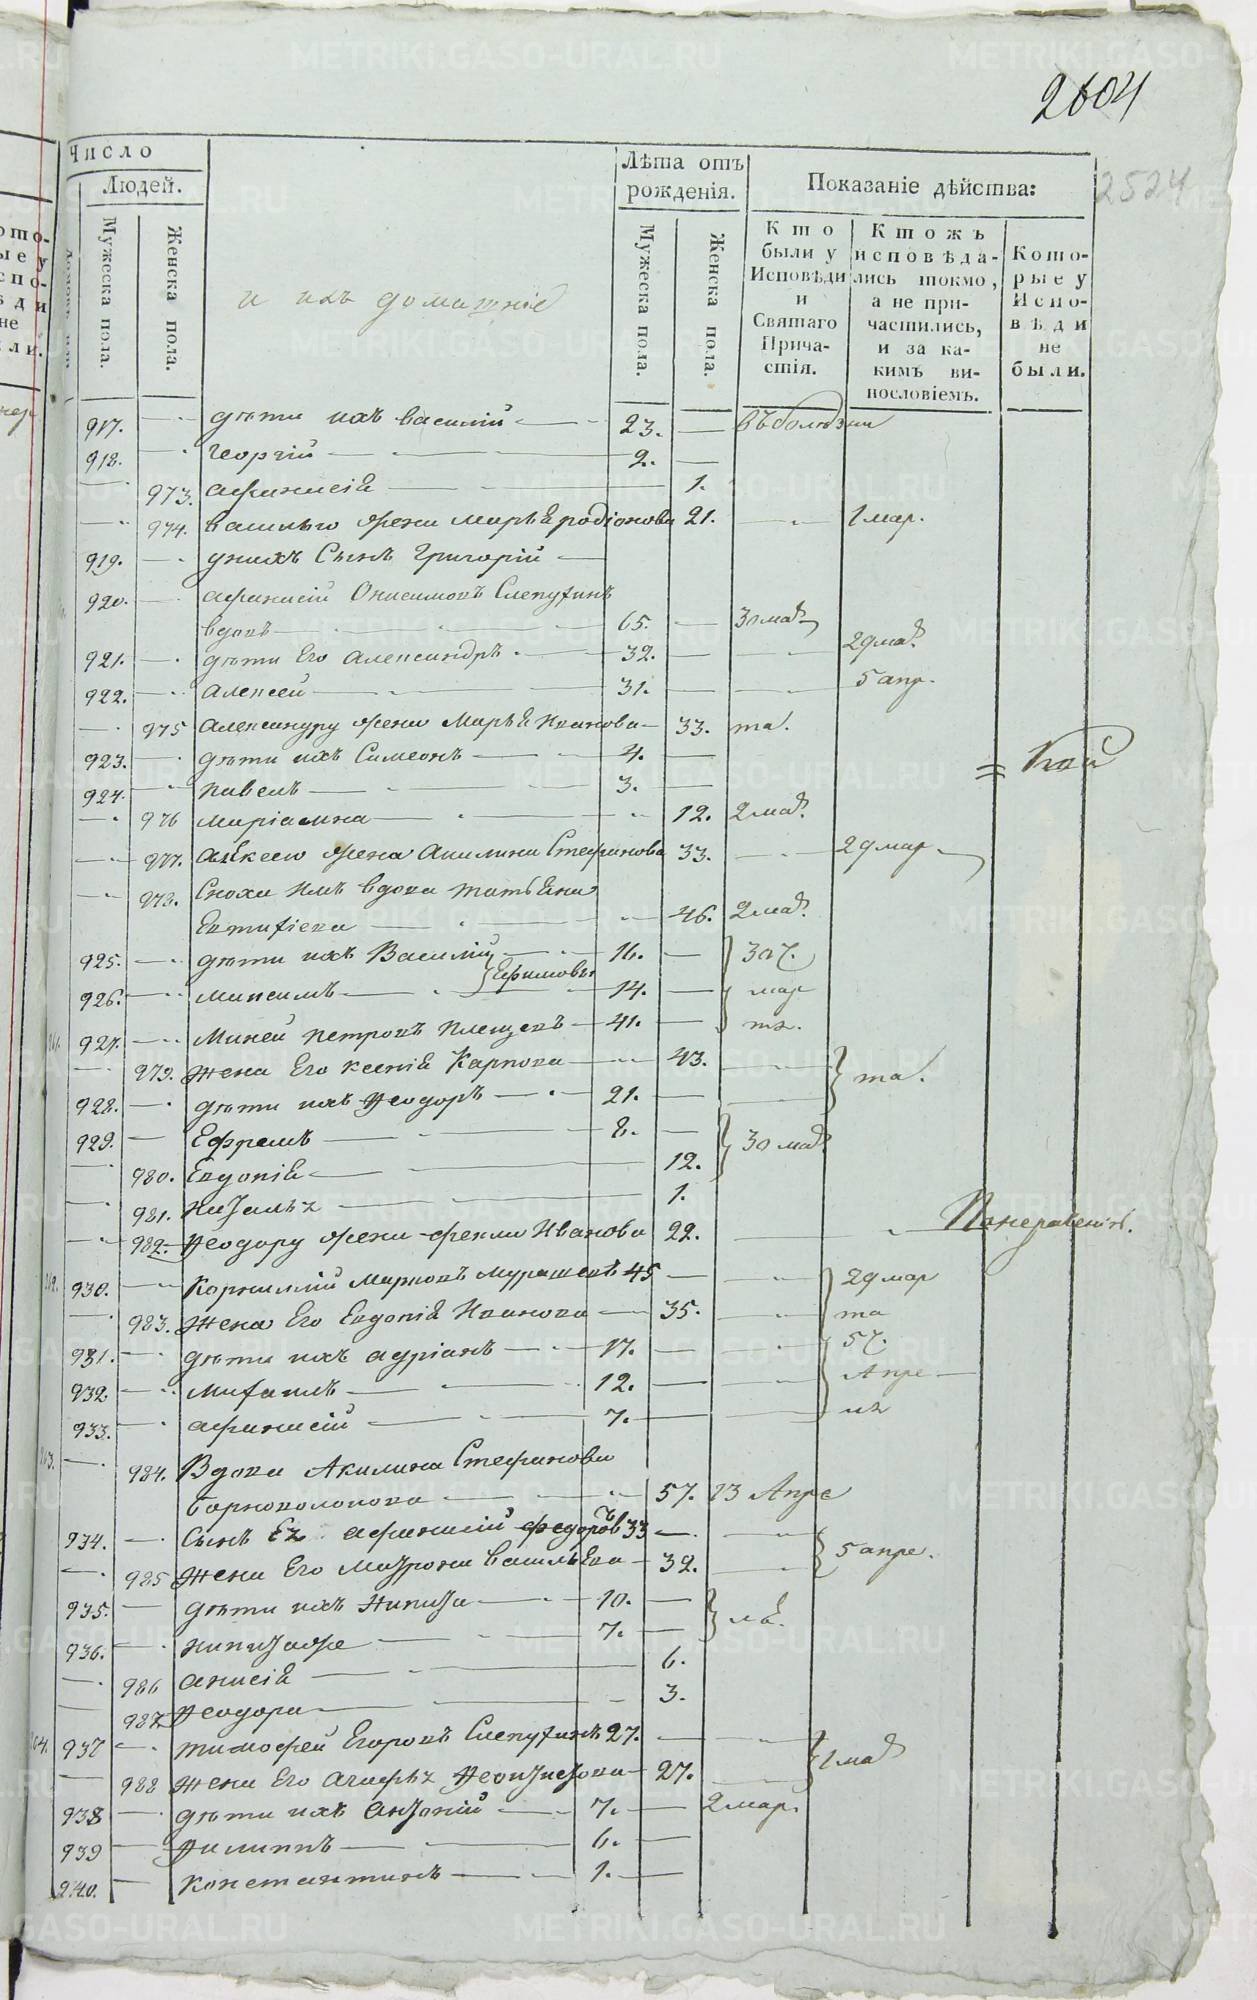 2604
2524
Число
Людей.
Мужеска пола.
Женска пола.
и ихъ домашніе
Лѣта отъ рожденія.
Мужеска пола.
Женска пола.
Показаніе дѣйства:
Кто были у Исповѣди и Святаго Прича-стія.
Ктожъ исповѣда-лись токмо, а не при-частились, и за ка-кимъ ви-нословіемъ.
Кото-рые у Испо-вѣди не были.
917. дѣти ихъ василій 23.
918. Георгій 2.
973. афанасіа 1.
974. василью жена Марьꙗ родіонова 21. 1 мар.
919. у нихъ Сынъ Григорій
920. афанасій Онисимовъ Слепухинъ
вдовъ 65. 30 мар
921. дѣти Его Александръ 32. 29 мар
922. Алексей 31. 5 апр.
975 Александру жена Марьꙗ Иванова 33. та.
923. дѣти ихъ Симеонъ 4.
924. павелъ 3.
976 Маріамна 12. 2 мар.
977. алексею жена Акилина Стефанова 33. 29 мар
978. Сноха имъ вдова татьꙗна
Евтифіева 46. 2 мар.
925. дѣти ихъ Василій 16. 30 ч.
Ефимовы
926. максимъ 14. мар
927. Миней петровъ плещевъ 41. та.
979. жена Его ксеніꙗ Карпова 43. та.
928. дѣти ихъ Ѳеодоръ 21.
929. Ефремъ 8. 30 мар
980. Евдокіꙗ 12.
981. 1.
982. Ѳеодору жена фекла Иванова 22.
930. Корнилій Марковъ Мурашевъ 45 29 мар
983. жена Его Евдокіꙗ Иванова 35. та
931. дѣти ихъ адріанъ 17. 5 ч.
932. михаилъ 12. Апре
933. афанасій 7. ла
984. Вдова Акилина Стефанова
57. 23 Апре
934. Сынъ Еꙗ афанасій федоровъ 33 5 апре.
985 жена Его матрона васильева 32.
935. дѣти ихъ никита 10.
936. 7.
986 анисіꙗ 6.
987. Ѳеодора 3.
937 тимофей Егоровъ Слепухинъ 27. 1 мар
988 жена Его агафьꙗ 27.
938 дѣти ихъ антоній 7. 2 мар.
939 Филиппъ 6.
940. константинъ 1.
METRIKI.GASO-URAL.RU